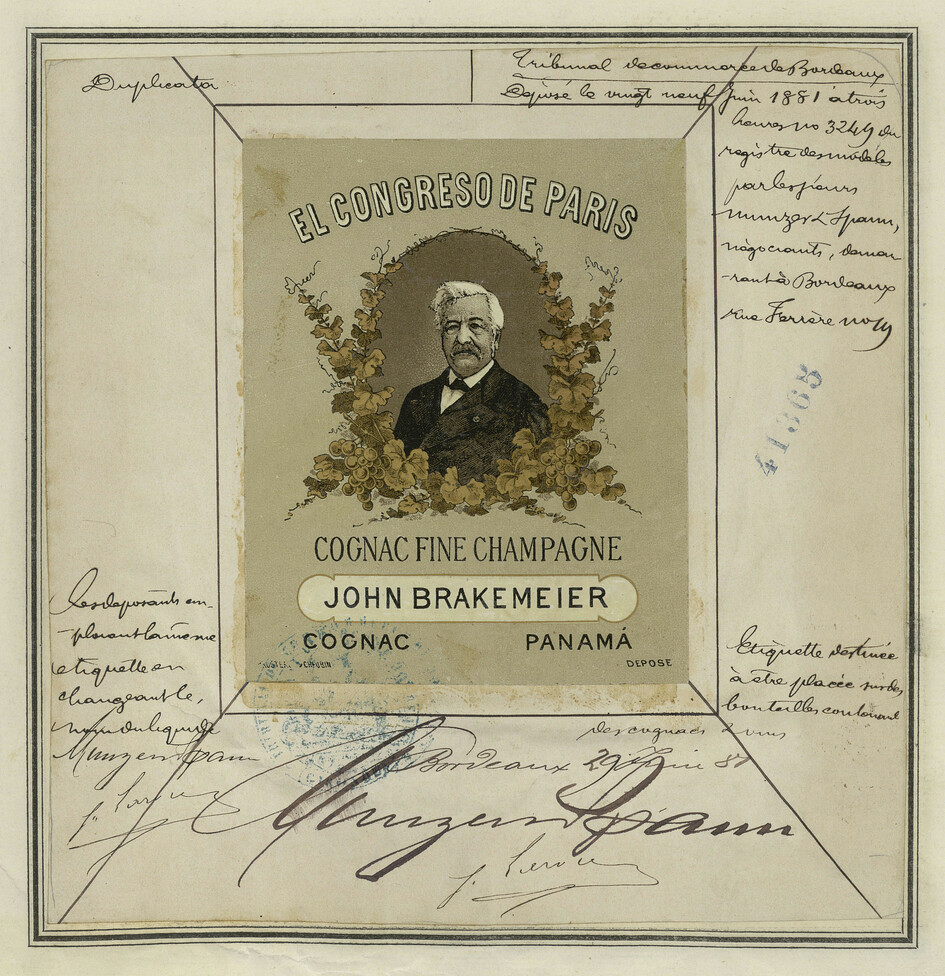 Duplicata
Tribunal de commerce de Bordeaux
Déposé le vingt neuf Juin 1881 à trois
heures no 3249 du
registre des modèles
par les sieurs
Munzer & Spann,
négociants, demeu-
-rant à Bordeaux
rue Ferrère no 19
EL CONGRESO DE PARIS
41365
COGNAC FINE CHAMPAGNE
JOHN BRAKEMEIER
COGNAC PANAMÁ
DEPOSE
Les déposants em-
-ploient la même
étiquette en
changeant le
nom du liquide
Munzer Spann
Etiquette destinée
à être placée sur des
bouteilles contenant
des cognacs & vins
Bordeaux 29 Juin 81
Munzer Spann